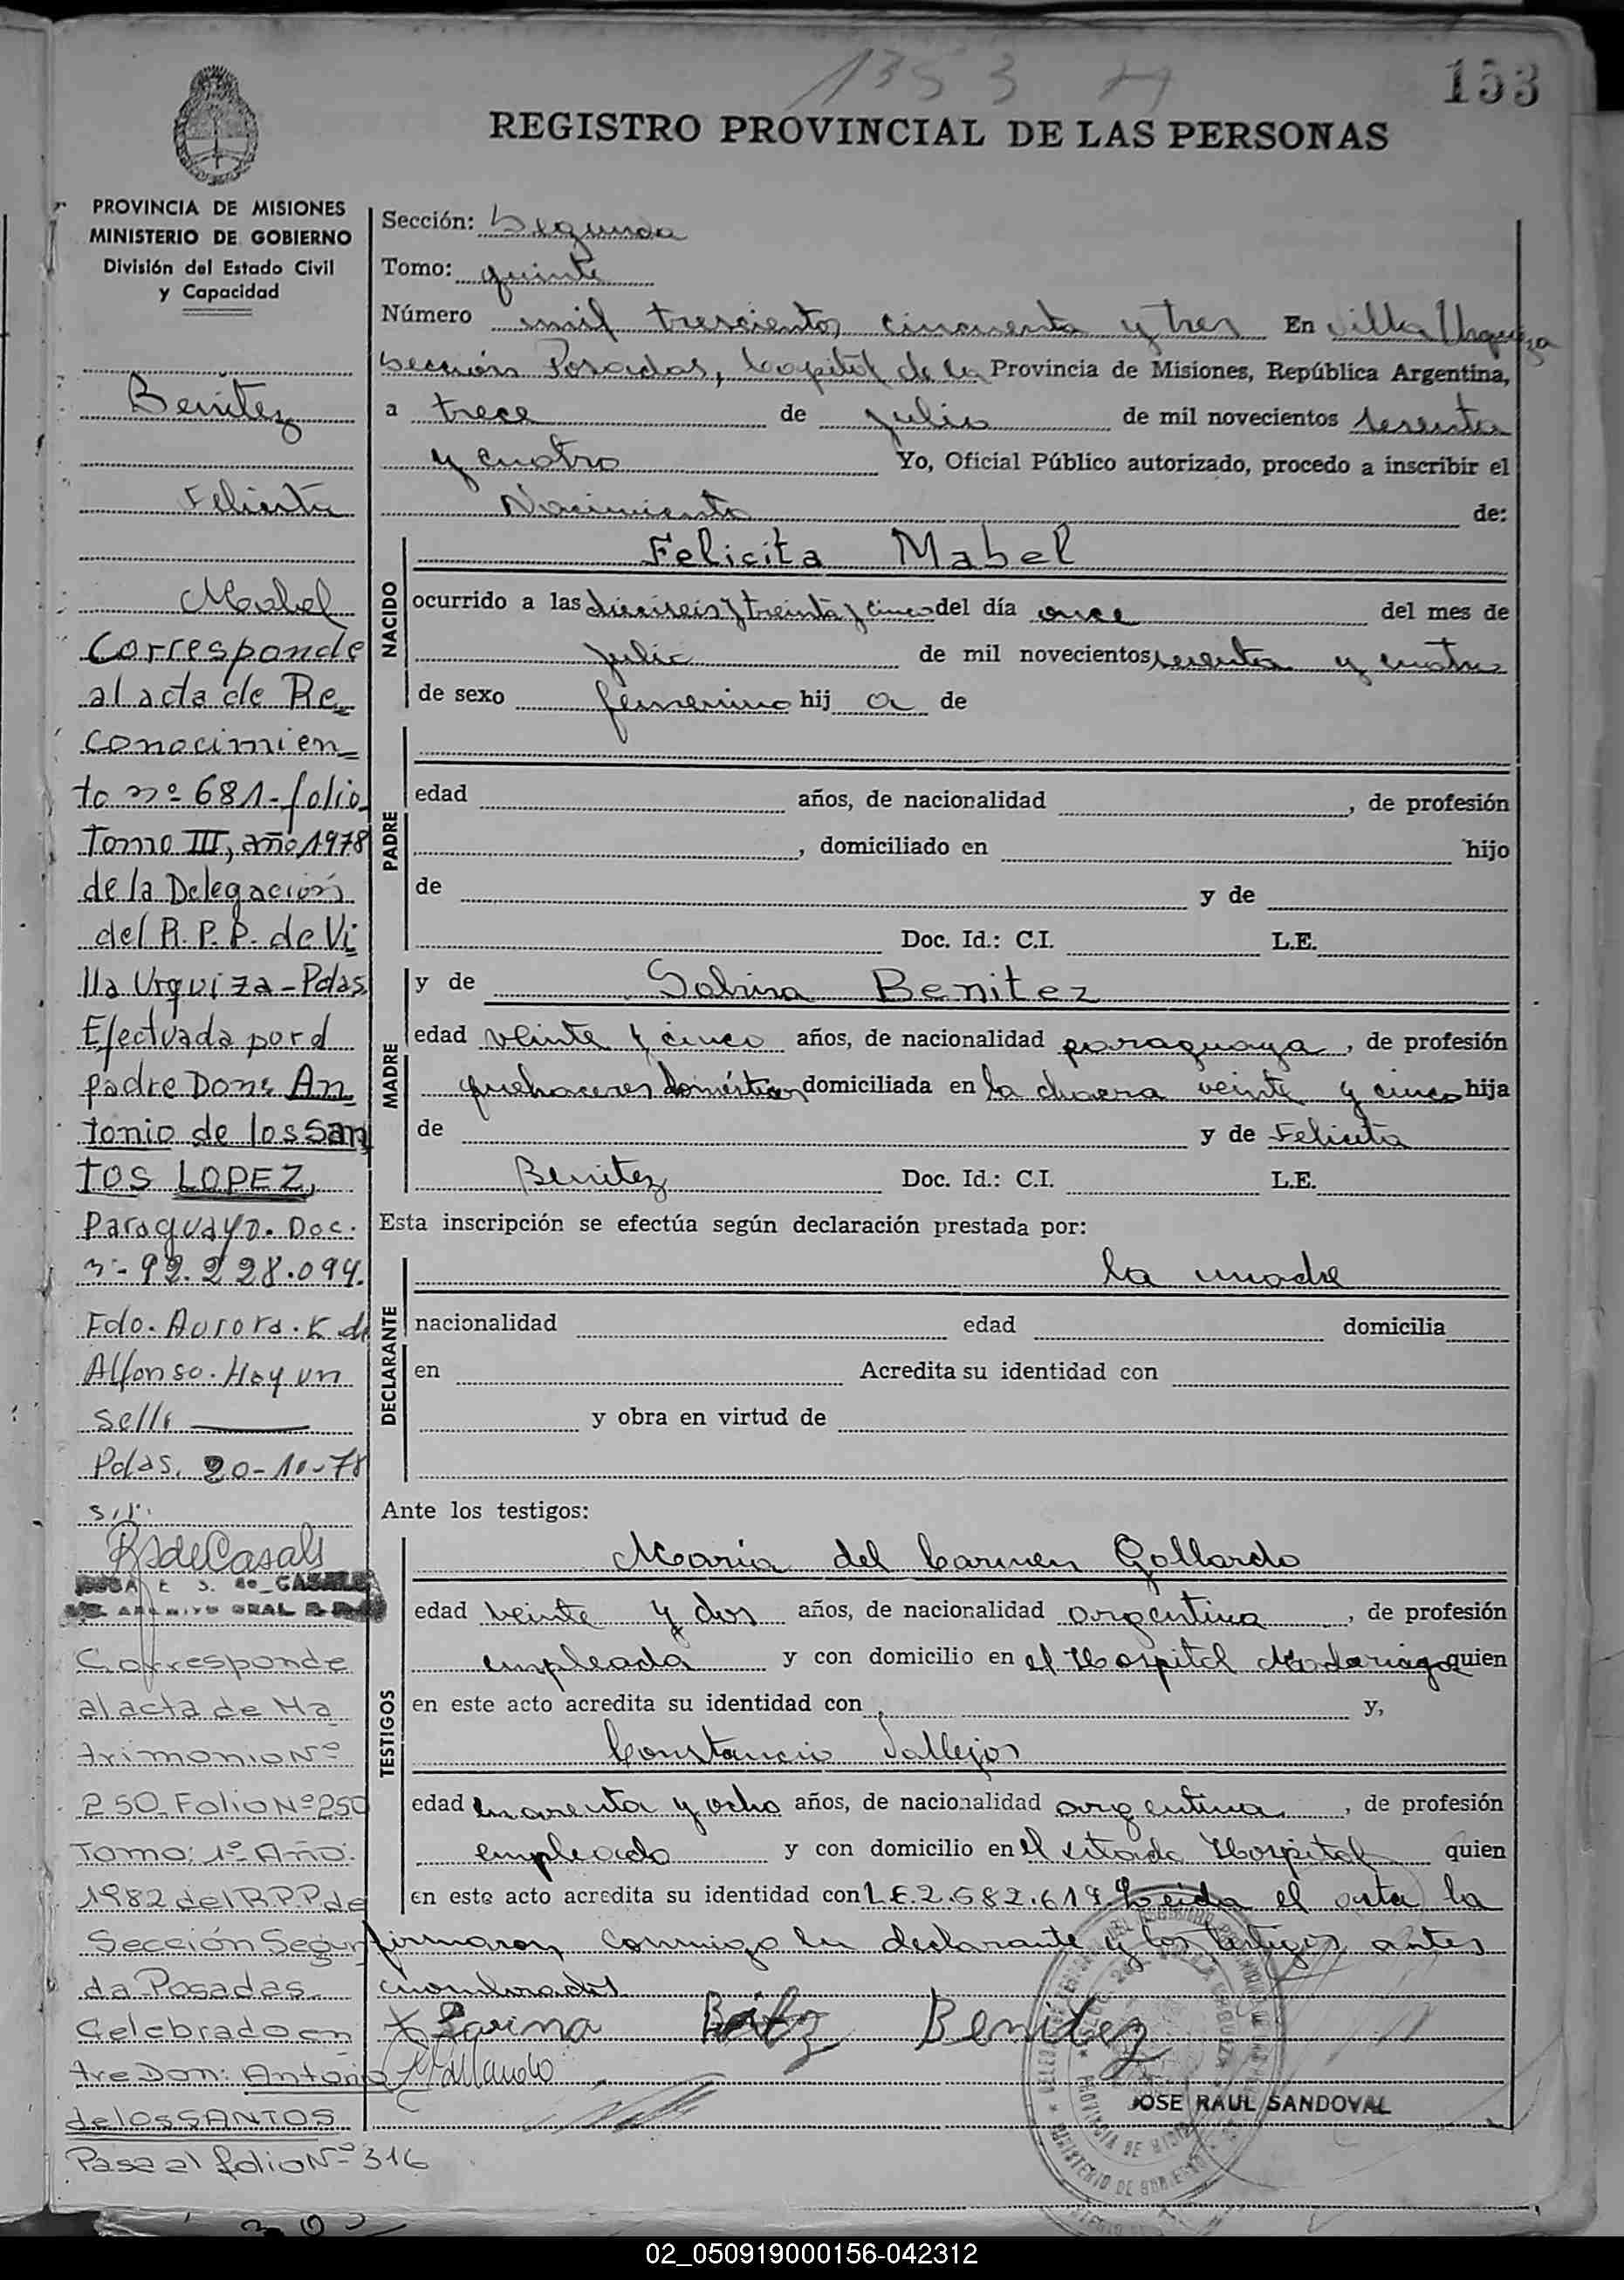 1353
153
REGISTRO PROVINCIAL DE LAS PERSONAS
PROVINCIA DE MISIONES
MINISTERIO DE GOBIERNO
División del Estado Civil
y Capacidad
Benitez
Felicita
Mabel
Corresponde
al acta de Re_
conocimien_
to nº 681-folio_
Tomo III, año 1978
de la Delegación
del R.P.P. de Vi
lla Urquiza-Pdas
Efectuada por el
padre Don: An
tonio de los San
TOS LOPEZ,
Paraguayo. Doc.
nº- 92.228.094.
Fdo. Aurora. K. de
Alfonso. Hay un
sello
Pdas. 20-10-78
s/r.
RS de Casals
Corresponde
al acta de Ma
trimonio Nº
250 Folio Nº 250
Tomo: 1º Año:
1982 del R.P.P. de
Sección Segun
da Posadas.
Celebrado en
tre Don: Antonio
de los SANTOS
Pase al folio Nº 316
Sección: Segunda
Tomo: quinto
Número mil trescientos cincuenta y tres En Villa Urquiza
Sección Posadas, Capital de la Provincia de Misiones, República Argentina,
a trece de julio de mil novecientos sesenta
y cuatro Yo, Oficial Público autorizado, procedo a inscribir el
Nacimiento de:
NACIDO
Felicita Mabel
ocurrido a las dieciseis y treinta y cinco del día once del mes de
julio de mil novecientos sesenta y cuatro
de sexo femenino hij a de
PADRE
edad años, de nacionalidad , de profesión
, domiciliado en hijo
de y de
Doc. Id.: C.I. L.E.
MADRE
y de Sabina Benitez
edad veinte y cinco años, de nacionalidad paraguaya, de profesión
quehaceres domésticos domiciliada en la chacra veinte y cinco hija
de y de Felicita
Benitez Doc. Id.: C.I. L.E.
Esta inscripción se efectúa según declaración prestada por:
DECLARANTE
la madre
nacionalidad edad domicilia
en Acredita su identidad con
y obra en virtud de
Ante los testigos:
TESTIGOS
Maria del Carmen Gallardo
edad veinte y dos años, de nacionalidad argentina, de profesión
empleada y con domicilio en el Hospital Madariaga quien
en este acto acredita su identidad con y,
Constancio Vallejos
edad cuarenta y ocho años, de nacionalidad argentina, de profesión
empleado y con domicilio en el citado Hospital quien
en este acto acredita su identidad con L.E. 2.682.619 Leida el acta la
firmaron conmigo la declarante y los testigos antes
nombrados
x Savina Benitez
JOSE RAUL SANDOVAL
02_050919000156-042312